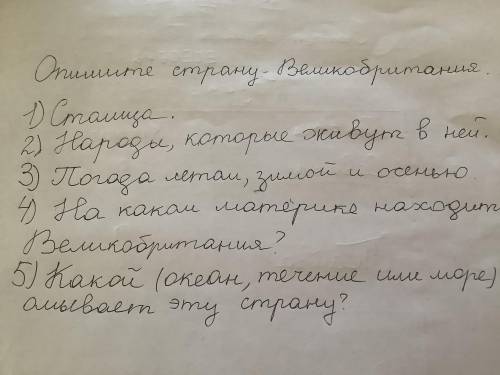 Опишите страну-Великобритания.
1) Столица.
2) Народы, которые живут в ней.
3) Погода летом, зимой и осенью.
4) На каком материке находит
Великобритания?
5) Какой (океан, течение или море)
омывает эту страну?